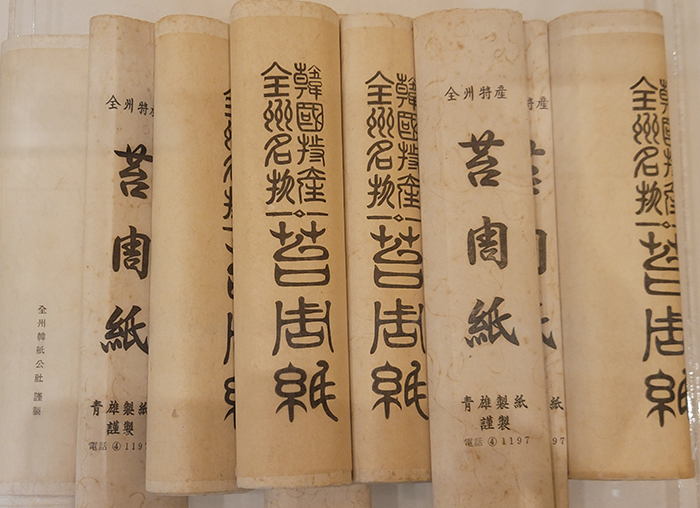 全州韓紙公社 謹製
全州特産
苔周紙
青雄製紙
謹製
電話 ④ 1197
韓國特産
全州名物
苔周紙
韓國特産
全州名物
苔周紙
全州特産
苔周紙
青雄製紙
謹製
電話 ④ 1197
97
韓國特産
全州名物
苔周紙